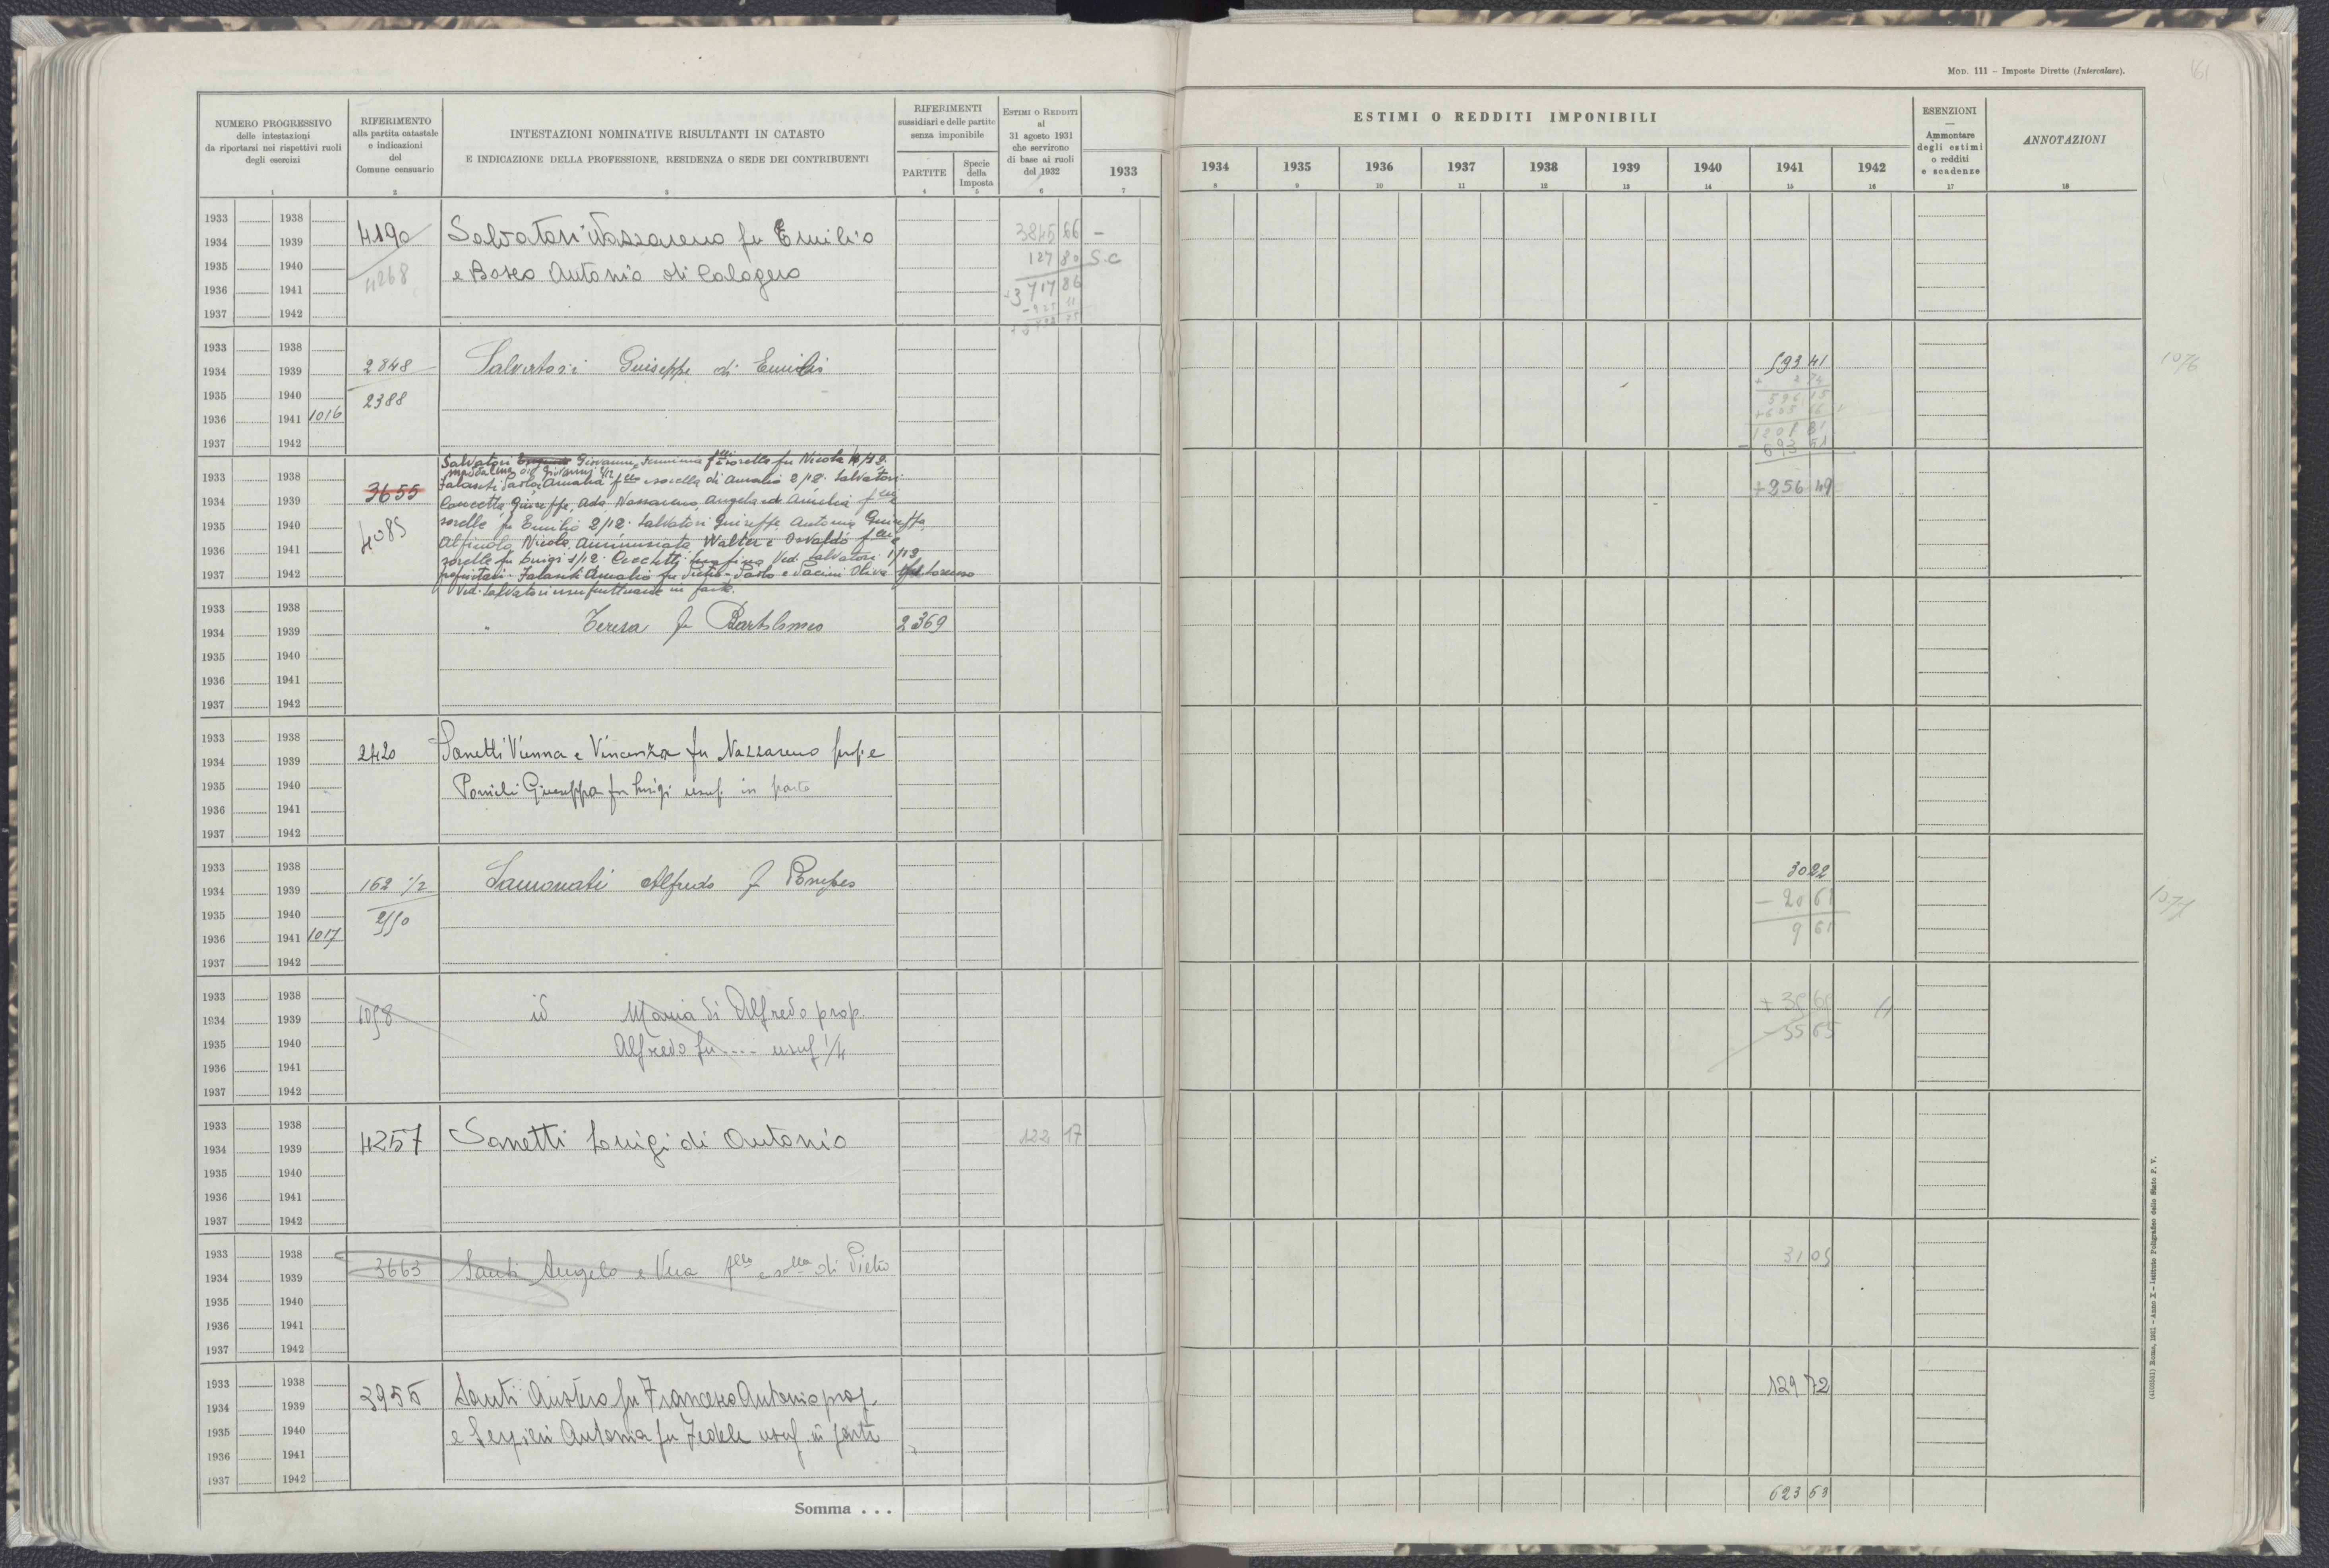 Mod. 111 – Imposte Dirette (Intercalare).
61
NUMERO PROGRESSIVO
delle intestazioni
da riportarsi nei rispettivi ruoli
degli esercizi
1
RIFERIMENTO
alla partita catastale
e indicazioni
del
Comune censuario
2
INTESTAZIONI NOMINATIVE RISULTANTI IN CATASTO
E INDICAZIONE DELLA PROFESSIONE, RESIDENZA O SEDE DEI CONTRIBUENTI
3
RIFERIMENTI
sussidiari e delle partite
senza imponibile
PARTITE
4
Specie
della
Imposta
5
Estimi o Redditi
al
31 agosto 1931
che servirono
di base ai ruoli
del 1932
6
ESTIMI O REDDITI IMPONIBILI
1933
7
1934
8
1935
9
1936
10
1937
11
1938
12
1939
13
1940
14
1941
15
1942
16
ESENZIONI
—
Ammontare
degli estimi
o redditi
e scadenze
17
ANNOTAZIONI
18
1933 1938
1934 1939 4190 Salvatori Nazzareno fu Emilio 3845 66 –
1935 1940 4268 e Bosco Antonio di Calogero 127 80 S.C
1936 1941 +3717 86
1937 1942
1933 1938
1934 1939 2848 Salvatori Guiseppe di Emilio 593 41 1076
1935 1940 2388 + 2 74
596 15
1936 1941 1016 +605 66
1201 81
1937 1942
1933 1938 Salvatori Giovanni, f.lli sorelle fu Nicola
1934 1939 3655 Falaschi Paolo, Amalia f.llo e sorella di Amalio 2/12. Salvatori +256 49
Concetta, Giuseppe, Ada, Nazzareno, Angela ed Amelia f.lli e
1935 1940 4085 sorelle fu Emilio 2/12. Salvatori Guiseppe, Antonio
1936 1941 Nicola, Annunziata Walter e Osvaldo f.lli e
sorelle fu Luigi 1/12. Ved. Salvatori 1/12
1937 1942 proprietari. Amalio fu Pietro-Paolo e Pacini Oliva fu Lorenzo
Ved. Salvatori usufruttuarie in parte.
1933 1938
1934 1939 " Teresa fu Bartolomeo 2369
1935 1940
1936 1941
1937 1942
1933 1938
1934 1939 2420 Sanetti Vienna e Vincenza fu Nazzareno prop e
1935 1940 Giuseppa fu Luigi usuf. in parte
1936 1941
1937 1942
1933 1938 30 22
1934 1939 162 1/2 Samonati Alfredo fu Pompeo – 20 61 1077
1935 1940 2550
1936 1941 1017 9 61
1937 1942
1933 1938
1934 1939 1058 id Maria di Alfredo prop.
1935 1940 Alfredo fu .... usuf 1/4
1936 1941
1937 1942
1933 1938
1934 1939 4257 Sanetti Luigi di Antonio 122 17
1935 1940
1936 1941
1937 1942
1933 1938
1934 1939 3663 Santi Angelo e f.llo e sorella di Pietro 31 05
1935 1940
1936 1941
1937 1942
1933 1938
1934 1939 3955 Santi Austero fu Francesco Antonio prop. 129 72
1935 1940 e Serpieri Antonia fu Fedele usuf. in parte
1936 1941
1937 1942
Somma . . . 623 63
Roma, 1931 – Anno X – Istituto Poligrafico dello Stato P. V.